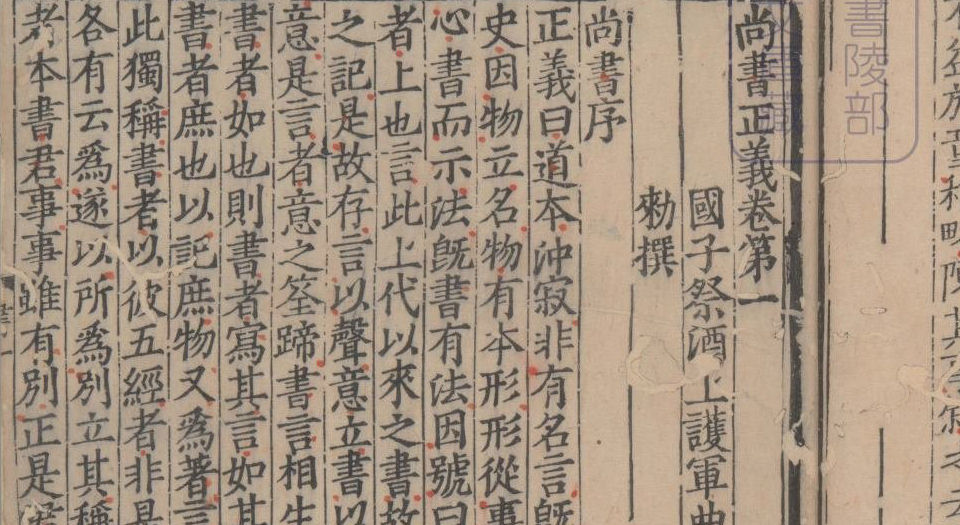 尚書正義卷第一
國子祭酒上護軍曲
勑撰
尚書序
正義曰道本沖寂非有名言旣
史因物立名物有本形形從事
心書而示法旣書有法因號曰
者上也言此上代以來之書故
之記是故存言以聲意立書以
意是言者意之筌蹄書言相生
書者如也則書者寫其言如其
書者庶也以記庶物又爲著言
此獨稱書者以彼五經者非是
各有云爲遂以所爲別立其稱
者本書君事事雖有別正是君
書陵部